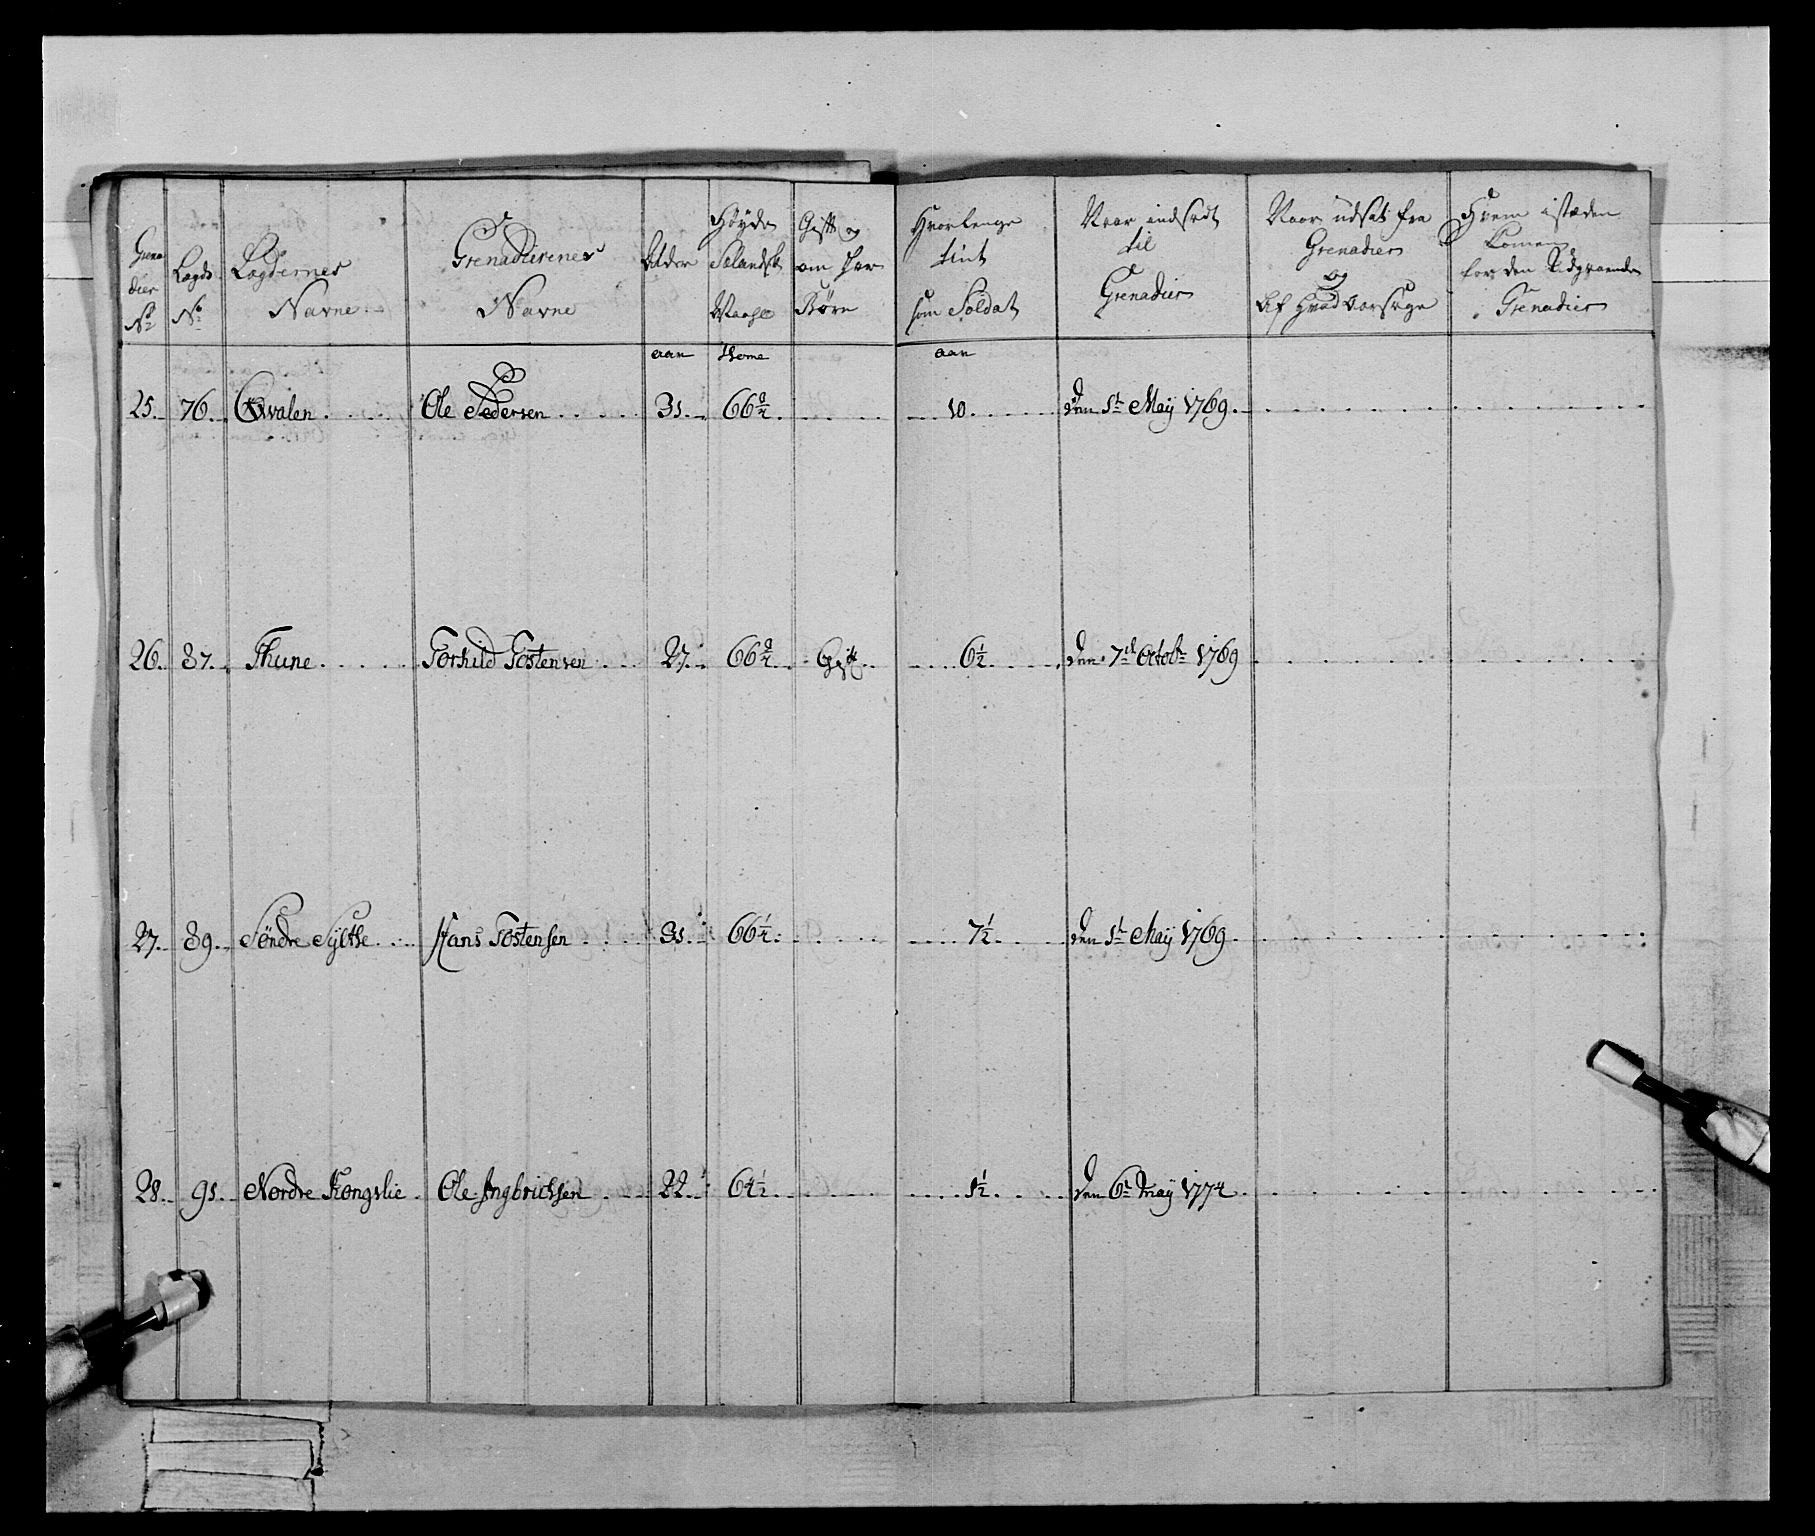 Grena
dier
No
Lægds
No
Lægdernes
Navne
Grenadierenes
Navne
Alder
Høyde
Sælandsk
Maahl
Gift og
om har
Børn
Hvorlenge
tient
som Soldat
Naar indsadt
til
Grenadier
Naar udsat fra
Grenadier
og
Af Hvad Aarsage
Hvem i stæden
komen
for den Udgaaende
Grenadier
aar
aar
25. 76. Qvalen Ole Pedersen 31 66 3/4 10 den 1t May 1769.
26. 87. Thune Torkild Tostensen 27 66 3/4 Gift 6 1/2 den 7de Octobr 1769
27. 89. Søndre Sylthe Hans Tostensen 31 66 1/4 7 1/2 den 1t May 1769
28. 91. Nordre Kongslie Ole Ingbrichtsen 22 64 1/2 1 1/2 den 6t May 1774